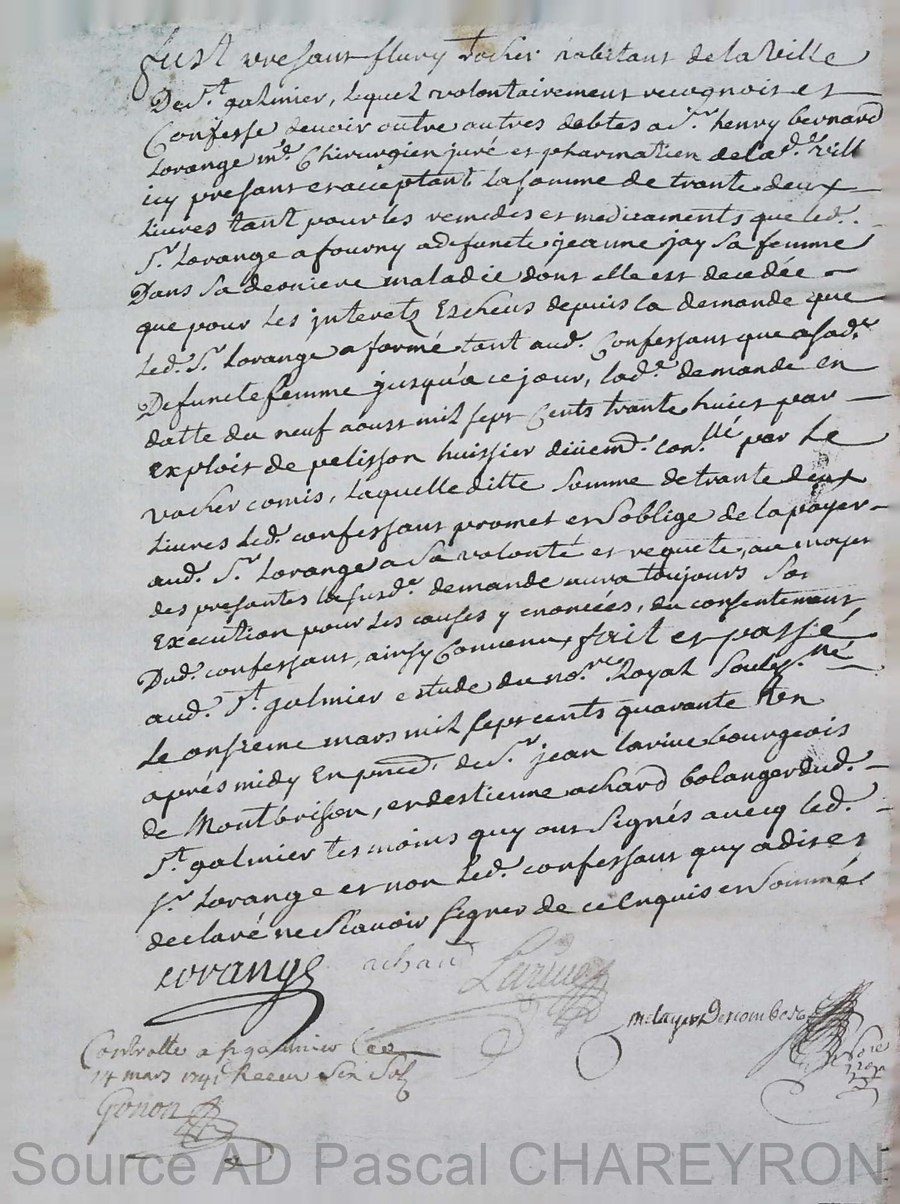 fust present flury rocher habitant de la Ville
De St. galmier, lequel volontairement recognoit et
Confesse devoir outre autres debtes a Sr. henry bernard
Lorange md. Chirurgien juré et pharmatien de lad. Ville
icy present et acceptant la somme de trante deux
Livres tant pour les remedes et medicaments que led.
Sr. Lorange a fourny a defuncte jeanne jay sa femme
Dans sa derniere maladie dont elle est decedée
que pour les jnterets Escheus depuis la demande que
Led. Sr. Lorange a formé tant aud. Confessant que a sad.
Defuncte femme jusqu'a ce jour, lad. demande en
datte du neuf aoust mil sept Cents trante huict par
Exploit de pelisson huissier con.llé par Le
vacher comis, Laquelle ditte somme de trante deux
Livres Led. confessant promet et s'oblige de la payer
aud. Sr. Lorange a sa volonté et requete, au moyen
des presantes la susd. demande aura toujours son
Execution pour les causes y enoncées, du consentement
Dud. confessant, ainsy Convenu, fait et passé
aud. St. galmier estude du no.re Royal Soubs.né
Le onsieme mars mil sept cents quarante
aprés midy En pnce. de Sr. jean larive bourgeois
de Montbrison, et destienne achard bolanger dud.
St. galmier tesmoins quy ont signés avecq led.
Sr. Lorange et non Led. confessant quy a dit et
declaré ne scavoir signer de ce Enquis et sommé
Lorange achard Larive
Controlle a st galmier Ce
14 mars 1741 Receu six sols
Gonon
Source AD Pascal CHAREYRON